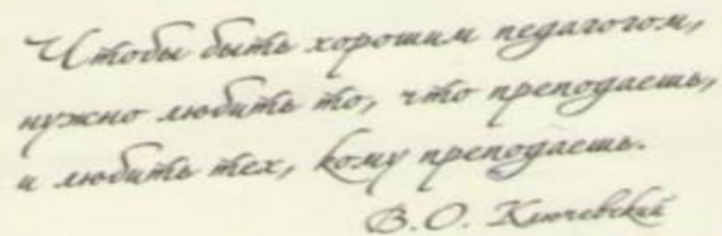 Чтобы быть хорошим педагогом,
нужно любить то, что преподаешь,
и любить тех, кому преподаешь.
В.О. Ключевский